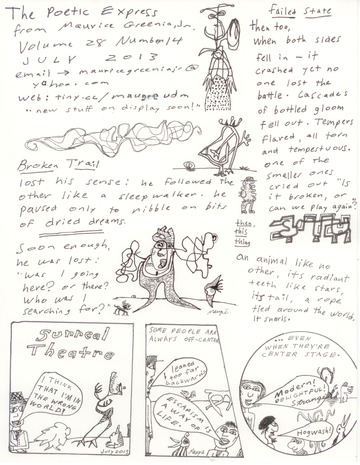 The Poetic Express
from Maurice Greenia, Jr.
Volume 28 Number 14
JULY 2013
email → mauricegreeniajr@
yahoo.com
web: tiny.cc/maugre udm
"new stuff on display soon!"
Broken Trail
lost his sense: he followed the
other like a sleepwalker: he
paused only to nibble on bits
of dried dreams.
Soon enough,
he was lost:
"was I going
here? or there?
Who was I
searching for?"
failed State
then too,
When both sides
fell in - it
crashed yet no
one lost the
battle. Cascades
of bottled gloom
fell out. Tempers
flared, all torn
and tempestuous.
one of the
smaller ones
cried out "is
it broken, or
can we play again?"
then,
this
thing
An animal like no
other, its radiant
teeth like stars,
its tail, a rope
tied around the world,
It snarls.
Surreal
Theatre
I THINK
THAT I'M IN
THE WRONG
WORLD!
July 2013
SOME PEOPLE ARE
ALWAYS OFF-CENTER
I leaned
too far
backwards
ESCAPISM
A WAY OF
LIFE!
... EVEN
WHEN THEY'RE
CENTER STAGE.
Modern!
DELIGHTFUL!
Strange
Hogwash!